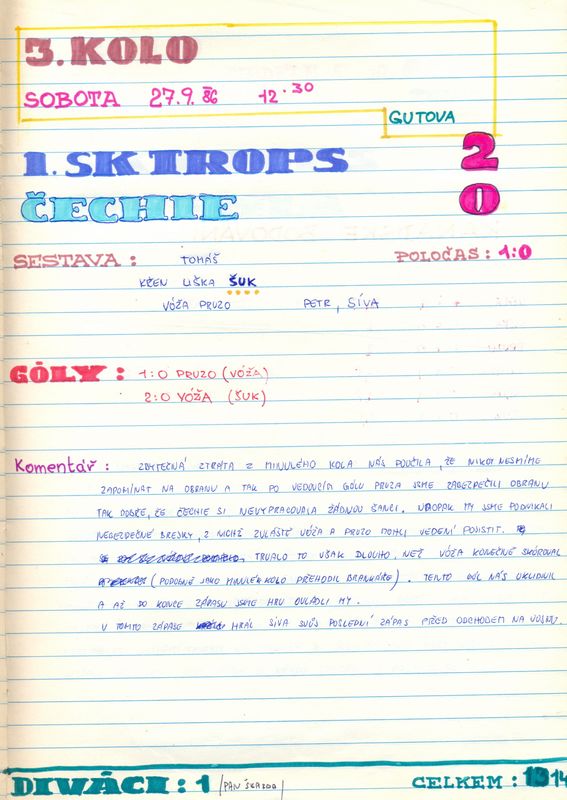 3. KOLO
SOBOTA 27.9. 86 12.30
GUTOVA
1. SK TROPS 2
ČECHIE 0
SESTAVA : TOMÁŠ POLOČAS : 1:0
KŘEN LIŠKA ŠUK
VÓŽA PRUZO PETR, SÍVA
GÓLY : 1:0 PRUZO (VÓŽA)
2:0 VÓŽA (ŠUK)
Komentář : ZBYTEČNÁ ZTRÁTA Z MINULÉHO KOLA NÁS POUČILA, ŽE NIKDY NESMÍME
ZAPOMÍNAT NA OBRANU A TAK PO VEDOUCÍM GÓLU PRUZA JSME ZABEZPEČILI OBRANU
TAK DOBŘE, ŽE ČECHIE SI NEVYPRACOVALA ŽÁDNOU ŠANCI. NAOPAK MY JSME PODNIKALI
NEBEZPEČNÉ BREJKY, Z NICHŽ ZVLÁŠTĚ VÓŽA A PRUZO MOHLI VEDENÍ POJISTIT.
TRVALO TO VŠAK DLOUHO, NEŽ VÓŽA KONEČNĚ SKÓROVAL
(PODOBNĚ JAKO MINULÉ KOLO PŘEHODIL BRANKÁŘE). TENTO GÓL NÁS UKLIDNIL
A AŽ DO KONCE ZÁPASU JSME HRU OVLÁDLI MY.
V TOMTO ZÁPASE HRÁL SÍVA SVŮJ POSLEDNÍ ZÁPAS PŘED ODCHODEM NA VOJNU.
DIVÁCI : 1 (PAN ŠKAZDA) CELKEM : 14